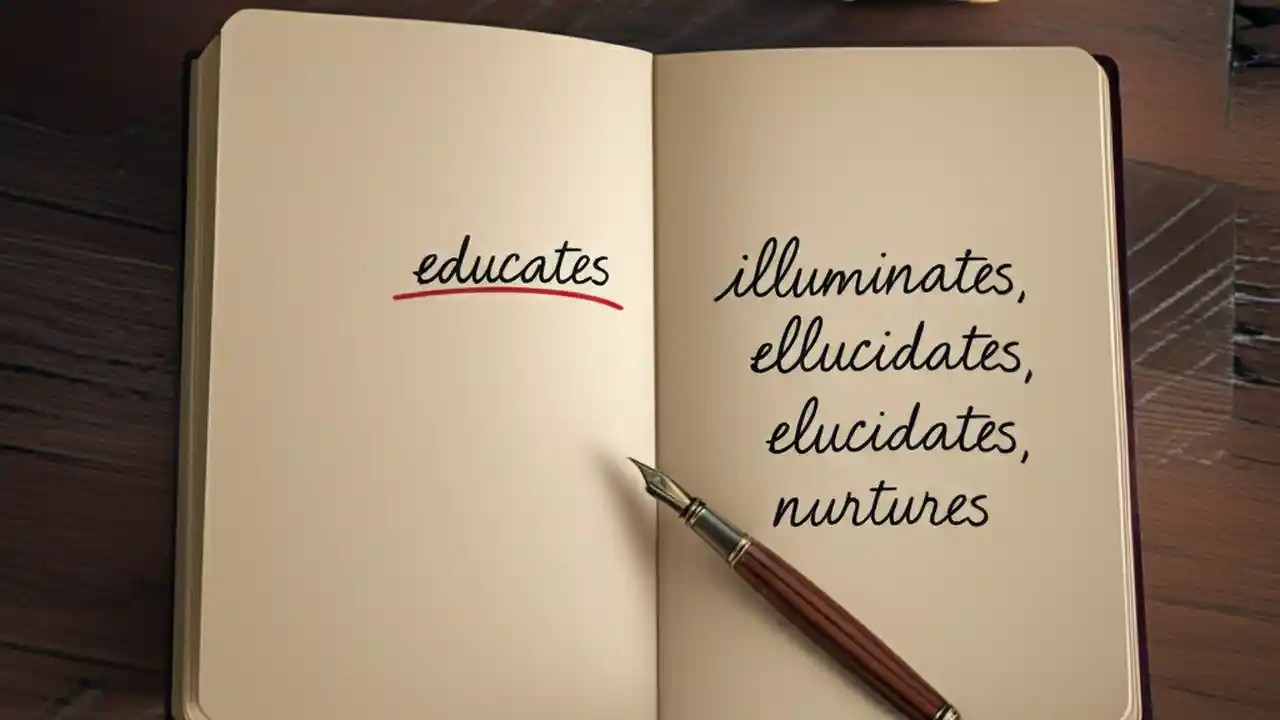 educates
illuminates,
ellucidates,
elucidates,
nurtures